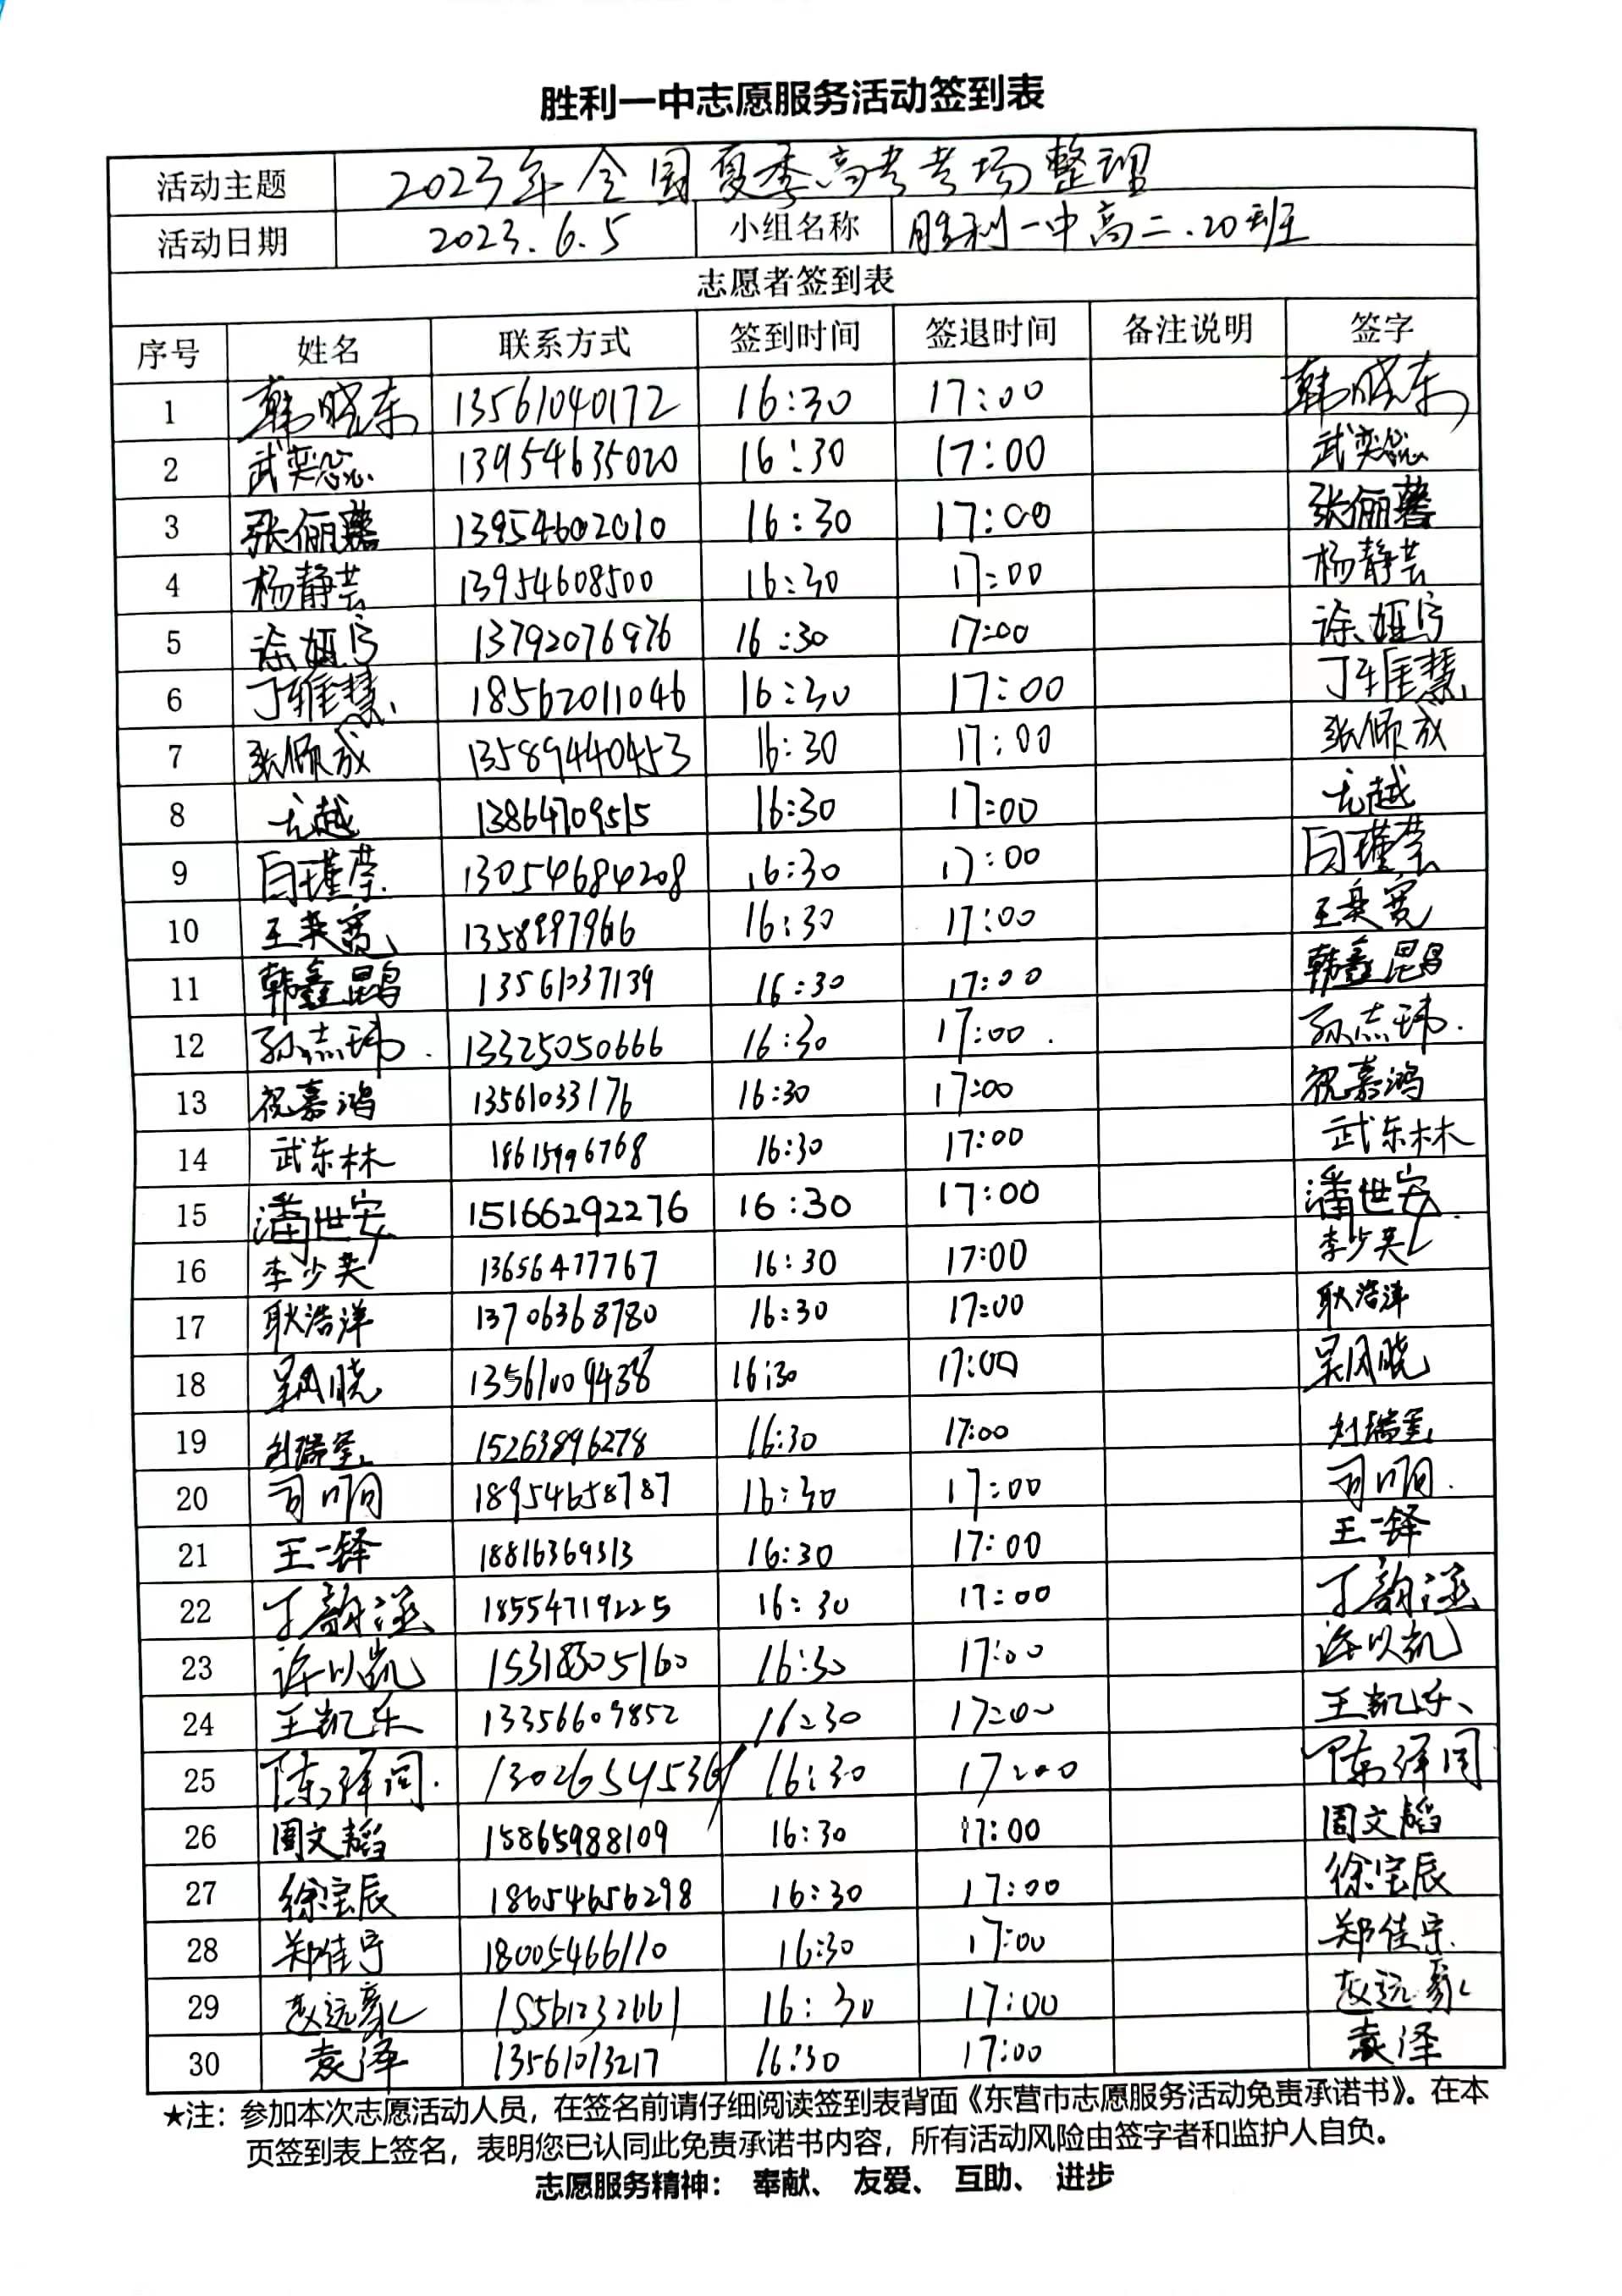 胜利一中志愿服务活动签到表
活动主题 2023年全国夏季高考考场整理
活动日期 2023.6.5 小组名称 胜利一中高二.20班
志愿者签到表
序号 姓名 联系方式 签到时间 签退时间 备注说明 签字
1 韩晓东 13561040172 16:30 17:00 韩晓东
2 武奕 13954635020 16:30 17:00 武奕
3 张俪馨 13954602010 16:30 17:00 张俪馨
4 杨静芸 13954608500 16:30 17:00 杨静芸
5 徐娅宁 13792076976 16:30 17:00 徐娅宁
6 丁雅慧 18562011046 16:30 17:00 丁雅慧
7 张倾成 13589440453 16:30 17:00 张倾成
8 尤越 13864709515 16:30 17:00 尤越
9 闫瑾莹 13054684208 16:30 17:00 闫瑾莹
10 王奕宽 16:30 17:00 王奕宽
11 韩鑫昌 13561037139 16:30 17:00 韩鑫昌
12 孙志玮. 13325050666 16:30 17:00. 孙志玮.
13 祝嘉鸿 13561033176 16:30 17:00 祝嘉鸿
14 武东林 18615996768 16:30 17:00 武东林
15 潘世安 15166292276 16:30 17:00 潘世安.
16 李少英 13656477767 16:30 17:00 李少英
17 耿浩洋 13706368780 16:30 17:00 耿浩洋
18 吴风晓 13561009438 16:30 17:00 吴风晓
19 刘瑞玺 15263896278 16:30 17:00 刘瑞玺
20 司 18954658787 16:30 17:00 司
21 王一铎 18816369313 16:30 17:00 王一铎
22 丁韵涵 18554719225 16:30 17:00 丁韵涵
23 许以凯 15318305160 16:30 17:00 许以凯
24 王凯乐 13356609852 16:30 17:00 王凯乐、
25 陈泽同. 16:30 17:00 陈泽同
26 周文韬 15865988109 16:30 17:00 周文韬
27 徐宝辰 18654656298 16:30 17:00 徐宝辰
28 郑佳宁 18005466110 16:30 17:00 郑佳宁
29 赵远豪 15561232661 16:30 17:00 赵远豪
30 袁泽 13561013217 16:30 17:00 袁泽
★注：参加本次志愿活动人员，在签名前请仔细阅读签到表背面《东营市志愿服务活动免责承诺书》。在本
页签到表上签名，表明您已认同此免责承诺书内容，所有活动风险由签字者和监护人自负。
志愿服务精神： 奉献、 友爱、 互助、 进步